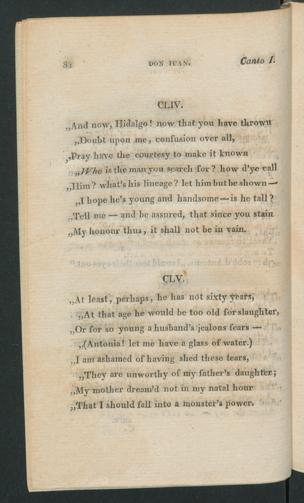 82 DON JUAN. Canto I.
CLIV.
„And now, Hidalgo! now that you have thrown
„Doubt upon me, confusion over all,
„Pray have the courtesy to make it known
„Who is the man you search for? how d'ye call
„Him? what's his lineage? let him but be shown —
„I hope he's young and handsome — is he tall?
„Tell me — and be assured, that since you stain
„My honour thus, it shall not be in vain.
CLV.
„At least, perhaps, he has not sixty years,
„At that age he would be too old for slaughter,
„Or for so young a husband's jealous fears —
„(Antonia! let me have a glass of water.)
„I am ashamed of having shed these tears,
„They are unworthy of my father's daughter;
„My mother dream'd not in my natal hour
„That I should fall into a monster's power.